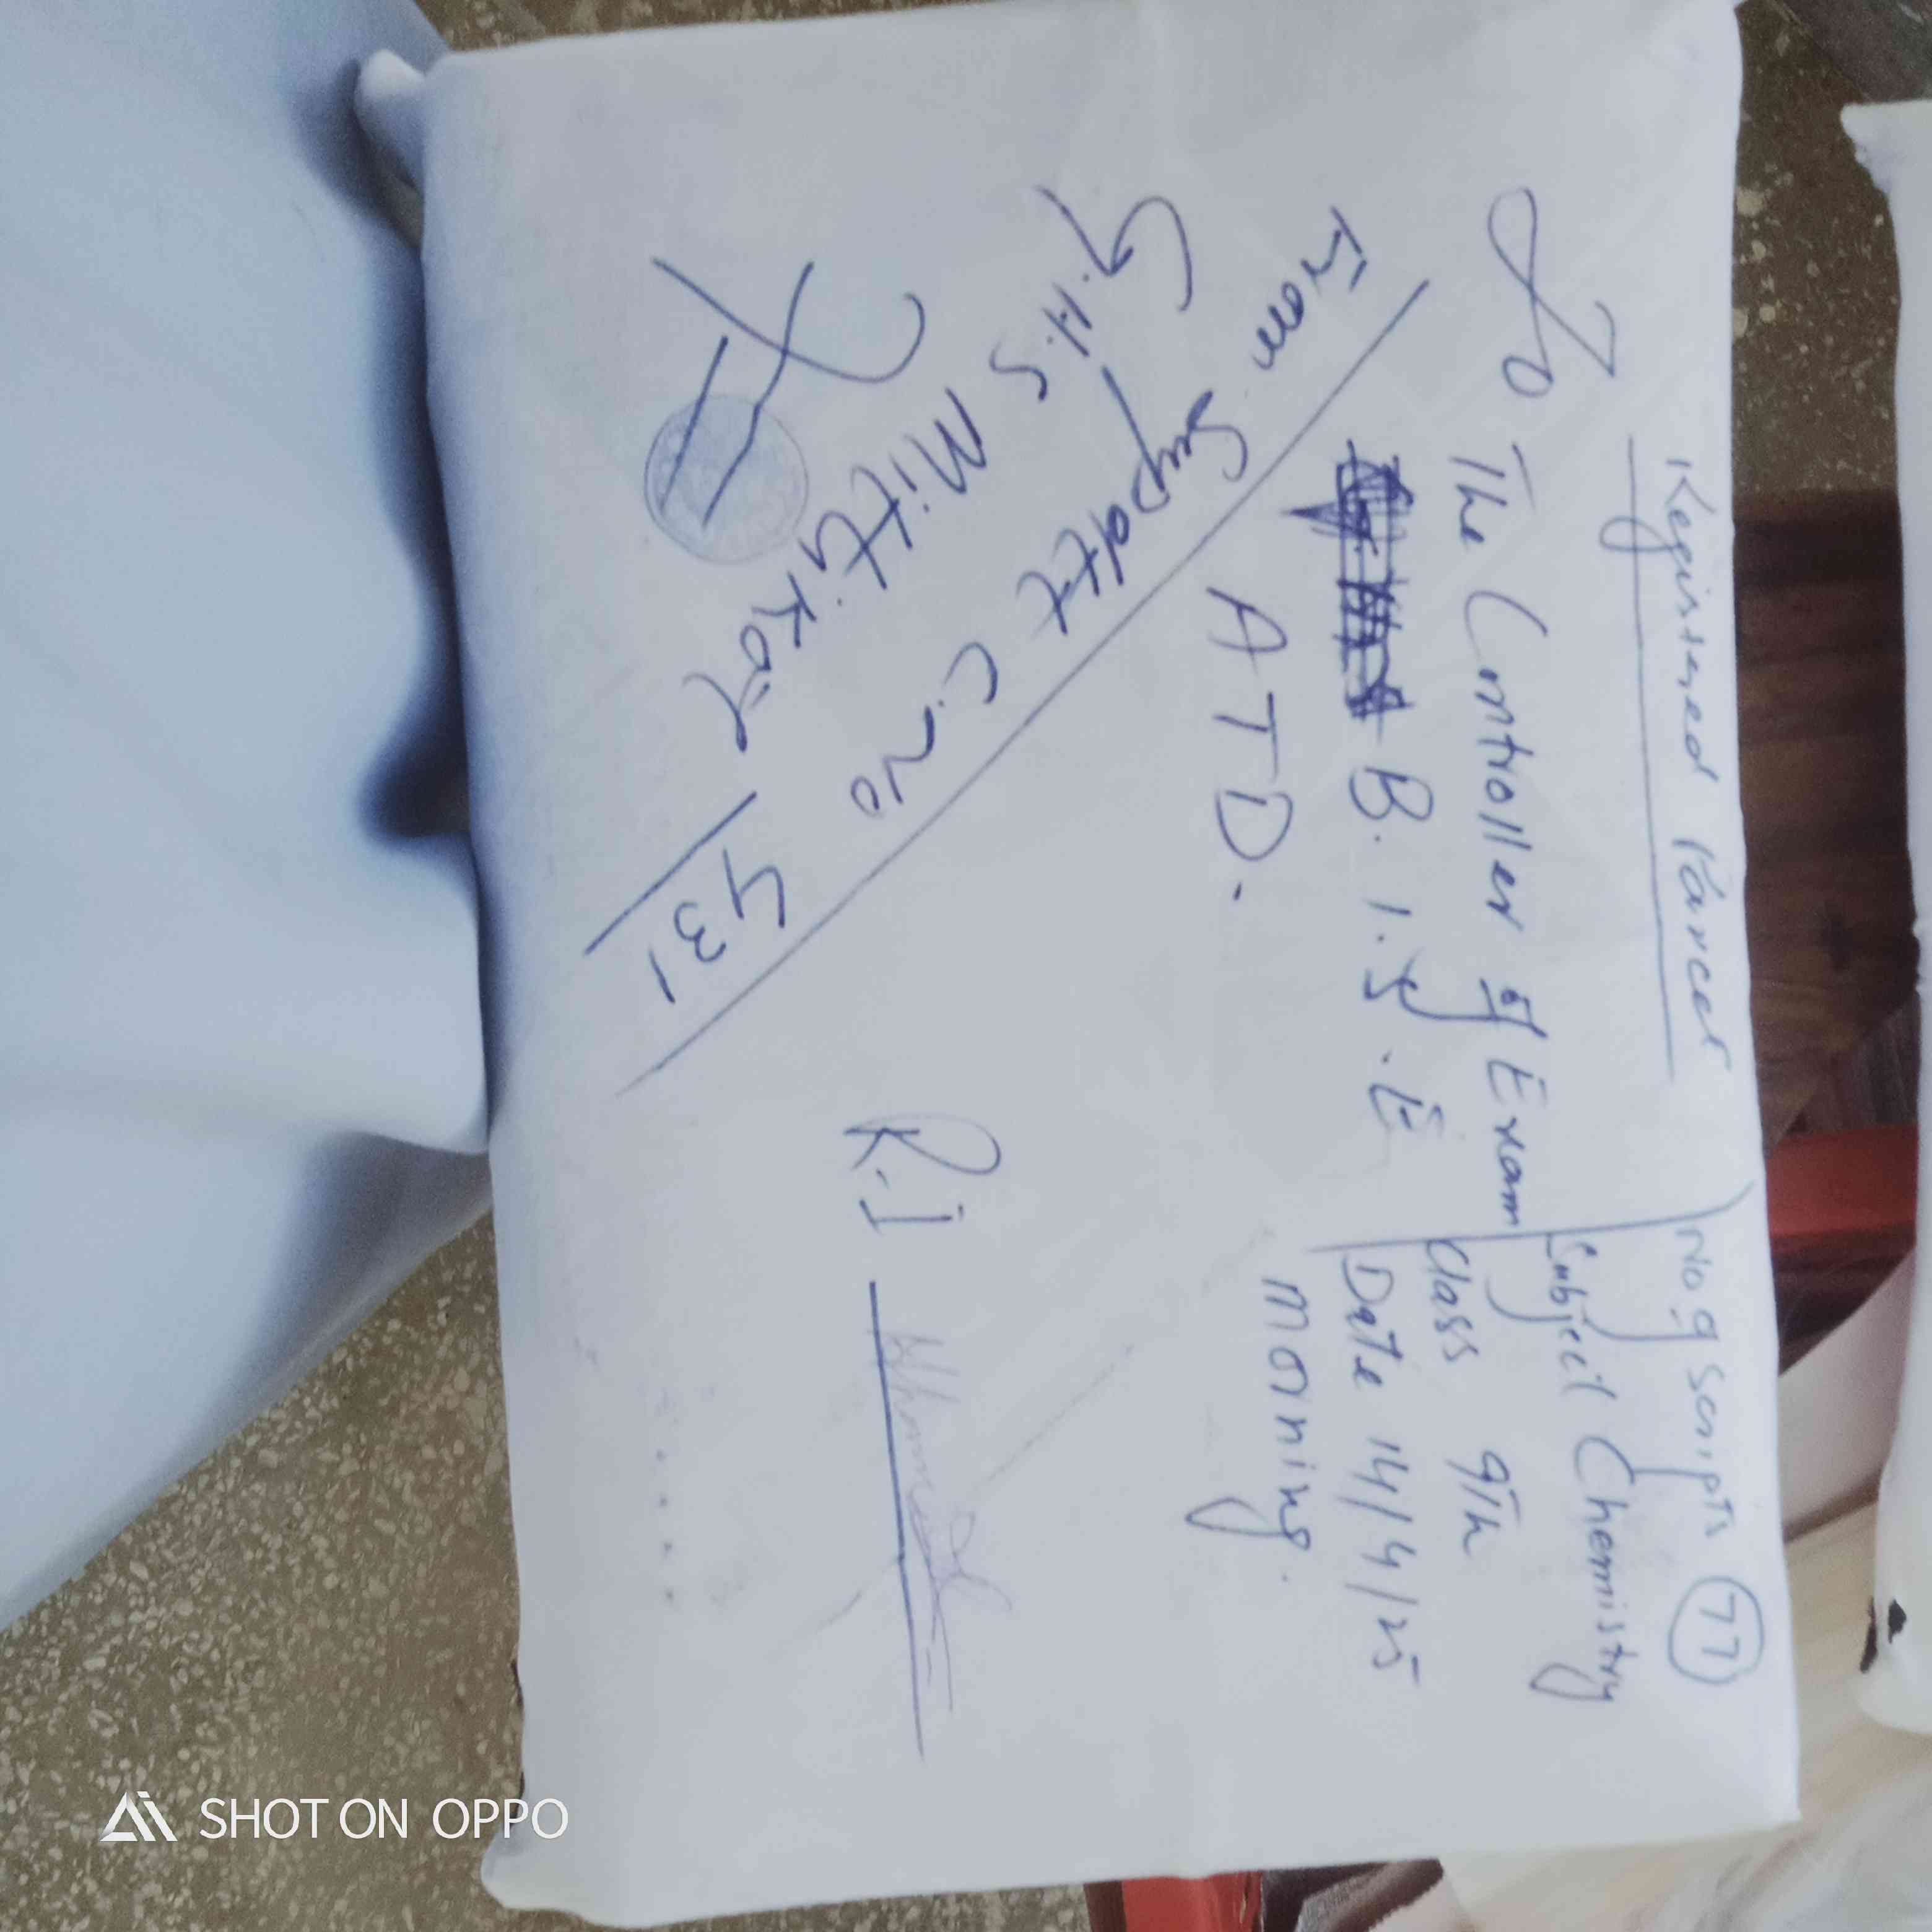 Registered Parcel
No of Scripts 77
To
The Controller of Exam
B.I.S.E
ATD.
Subject Chemistry
Class 9th
Date 14/4/25
Morning.
From
Supdtt C.No 431
G.H.S
R.I
SHOT ON OPPO